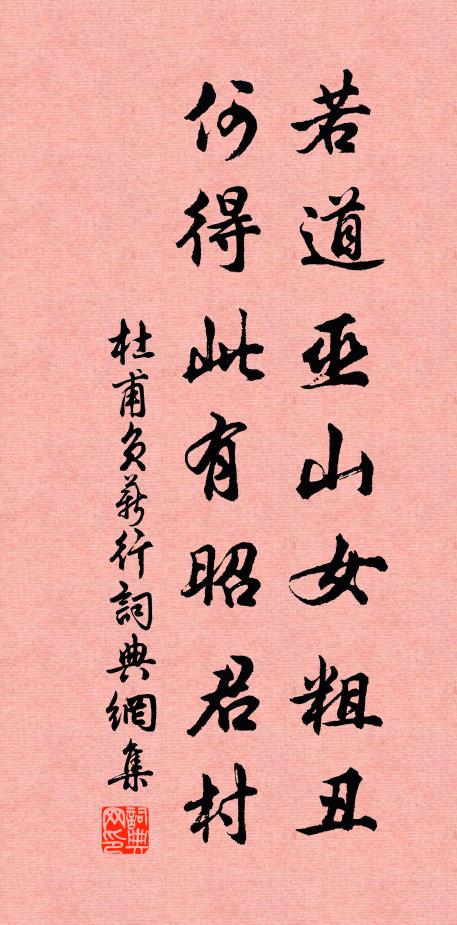 若道巫山女粗丑
何得此有昭君村
杜甫負薪行詞典網集
詞典网印